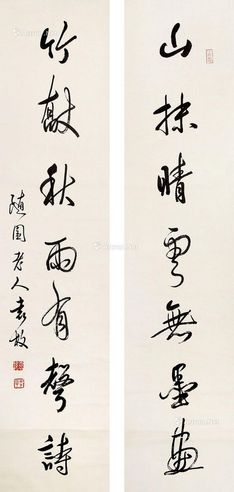 山抹晴雲無墨畫
竹敲秋雨有聲詩
隨園老人袁枚